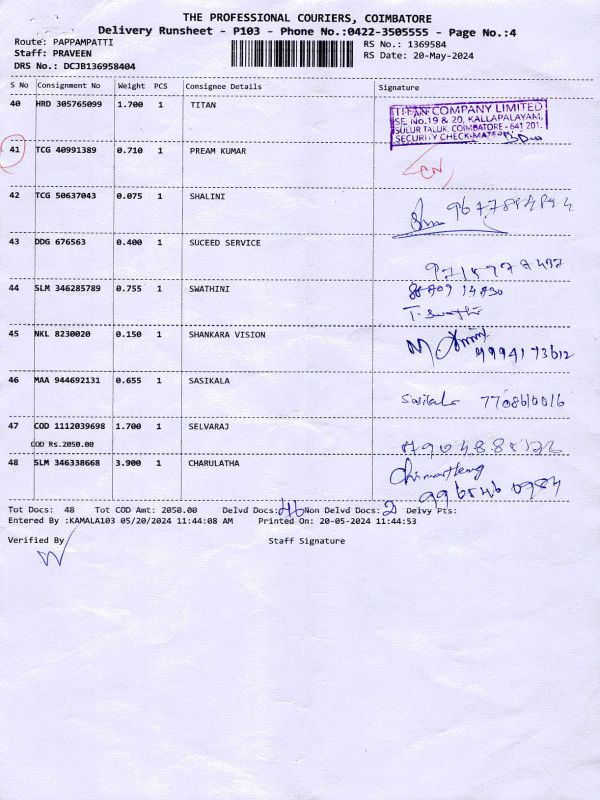 THE PROFESSIONAL COURIERS, COIMBATORE
Delivery Runsheet - P103 - Phone No.:0422-3505555 - Page No.:4
Route: PAPPAMPATTI
RS No.: 1369584
Staff: PRAVEEN
RS Date: 20-May-2024
DRS No.: DCJB136958404
S No Consignment No Weight PCS Consignee Details Signature
40 HRD 305765099 1.700 1 TITAN
TITAN COMPANY LIMITED
SF. No.19 & 20, KALLAPALAYAM,
SULUR TALUK, COIMBATORE - 641 201.
SECURITY CHECK-MATE
41 TCG 40991389 0.710 1 PREAM KUMAR
42 TCG 50637043 0.075 1 SHALINI
43 DDG 676563 0.400 1 SUCEED SERVICE
44 SLM 346285789 0.755 1 SWATHINI
T. Swathi
45 NKL 8230020 0.150 1 SHANKARA VISION
9994173612
46 MAA 944692131 0.655 1 SASIKALA
Sasikala 7708610016
47 COD 1112039698 1.700 1 SELVARAJ
COD Rs.2050.00
48 SLM 346338668 3.900 1 CHARULATHA
Tot Docs: 48 Tot COD Amt: 2050.00 Delvd Docs: 46 Non Delvd Docs: 2 Delvy Pts:
Entered By :KAMALA103 05/20/2024 11:44:08 AM Printed On: 20-05-2024 11:44:53
Verified By Staff Signature